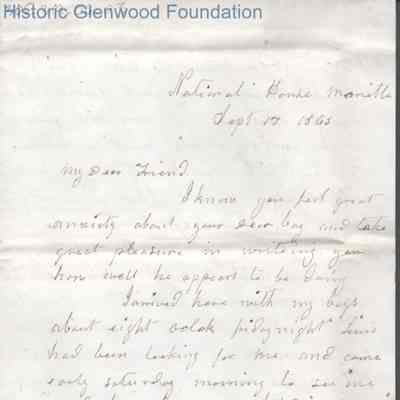 Historic Glenwood Foundation
National House Marietta
Sept 17 1865
My Dear Friend
I know you feel great
anxiety about your dear boy and take
great pleasure in writing you
how well he appears to be doing
I arrived here with my boys
about eight oclok fridaynight
had been looking for me and came
early saturday morning to see me